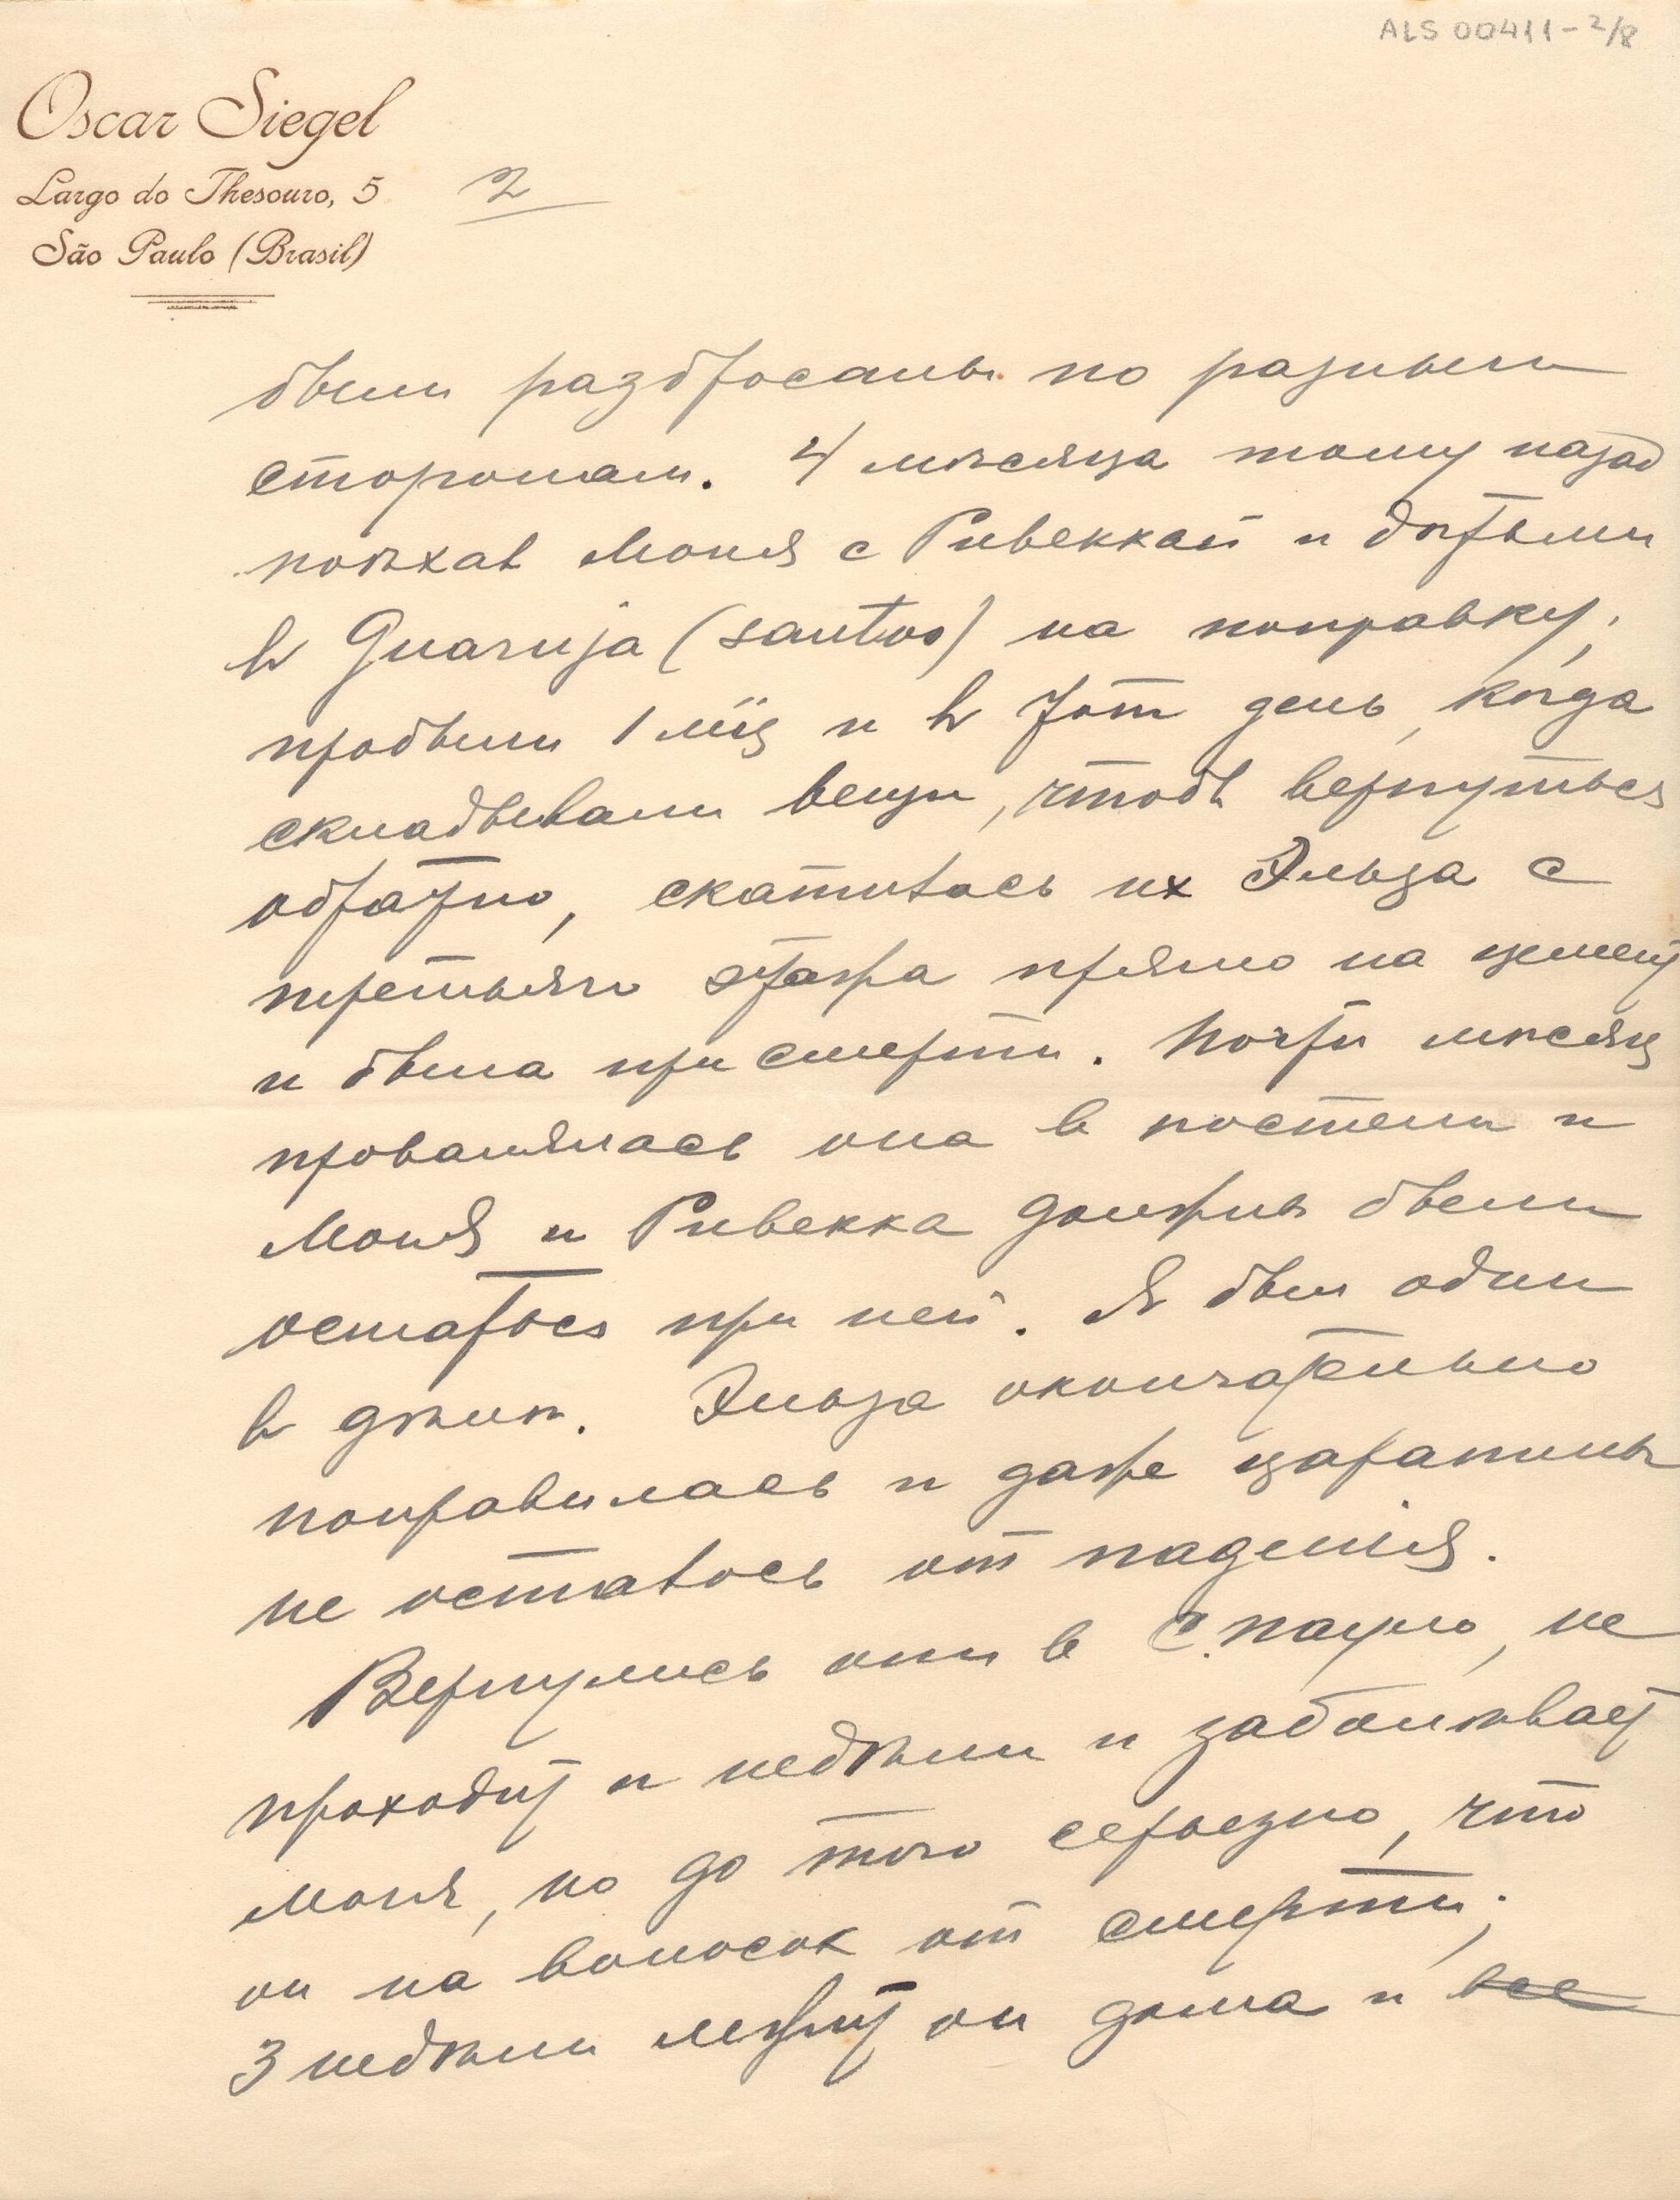 ALS 00411-2/8
Oscar Siegel
Largo do Thesouro, 5
São Paulo (Brasil)
2
были разбросаны по разным
сторонам. 4 мѣсяца тому назад
поѣхав Моня с Ривеккой и дѣтьми
в Guaruja (Santos) на поправку,
пробыли 1 мѣц и в тот день, когда
складывали вещи, чтоб вернуться
обратно, скатилась их Эльза с
третьяго этажа прямо на цемент
и была при смерти. Почти мѣсяц
провалялась она в постели и
Моня и Ривекка должны были
остаться при ней. Я был один
в дѣлѣ. Эльза окончательно
поправилась и даже царапины
не осталось от паденія.
Вернулись они в С. Пауло, не
проходит и недѣли и заболѣвает
Моня, но до того серьезно, что
он на волосок от смерти;
3 недѣли лежит он дома и все